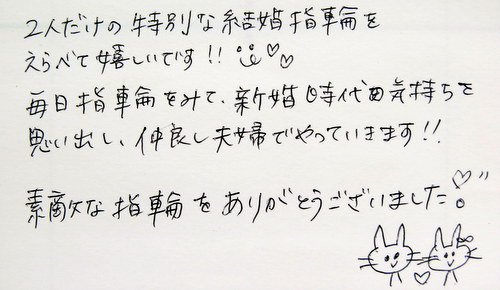 2人だけの特別な結婚指輪を
えらべて嬉しいです!!
毎日指輪をみて、新婚時代の気持ちを
思い出し、仲良し夫婦でやっていきます!!
素敵な指輪をありがとうございました!